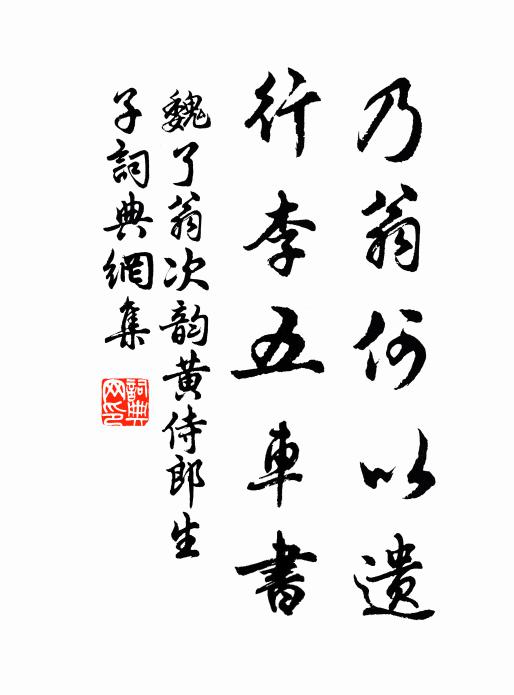 乃翁何以遗
行李五車書
魏了翁次韵黄侍郎生
子詞典網集
詞典
网印